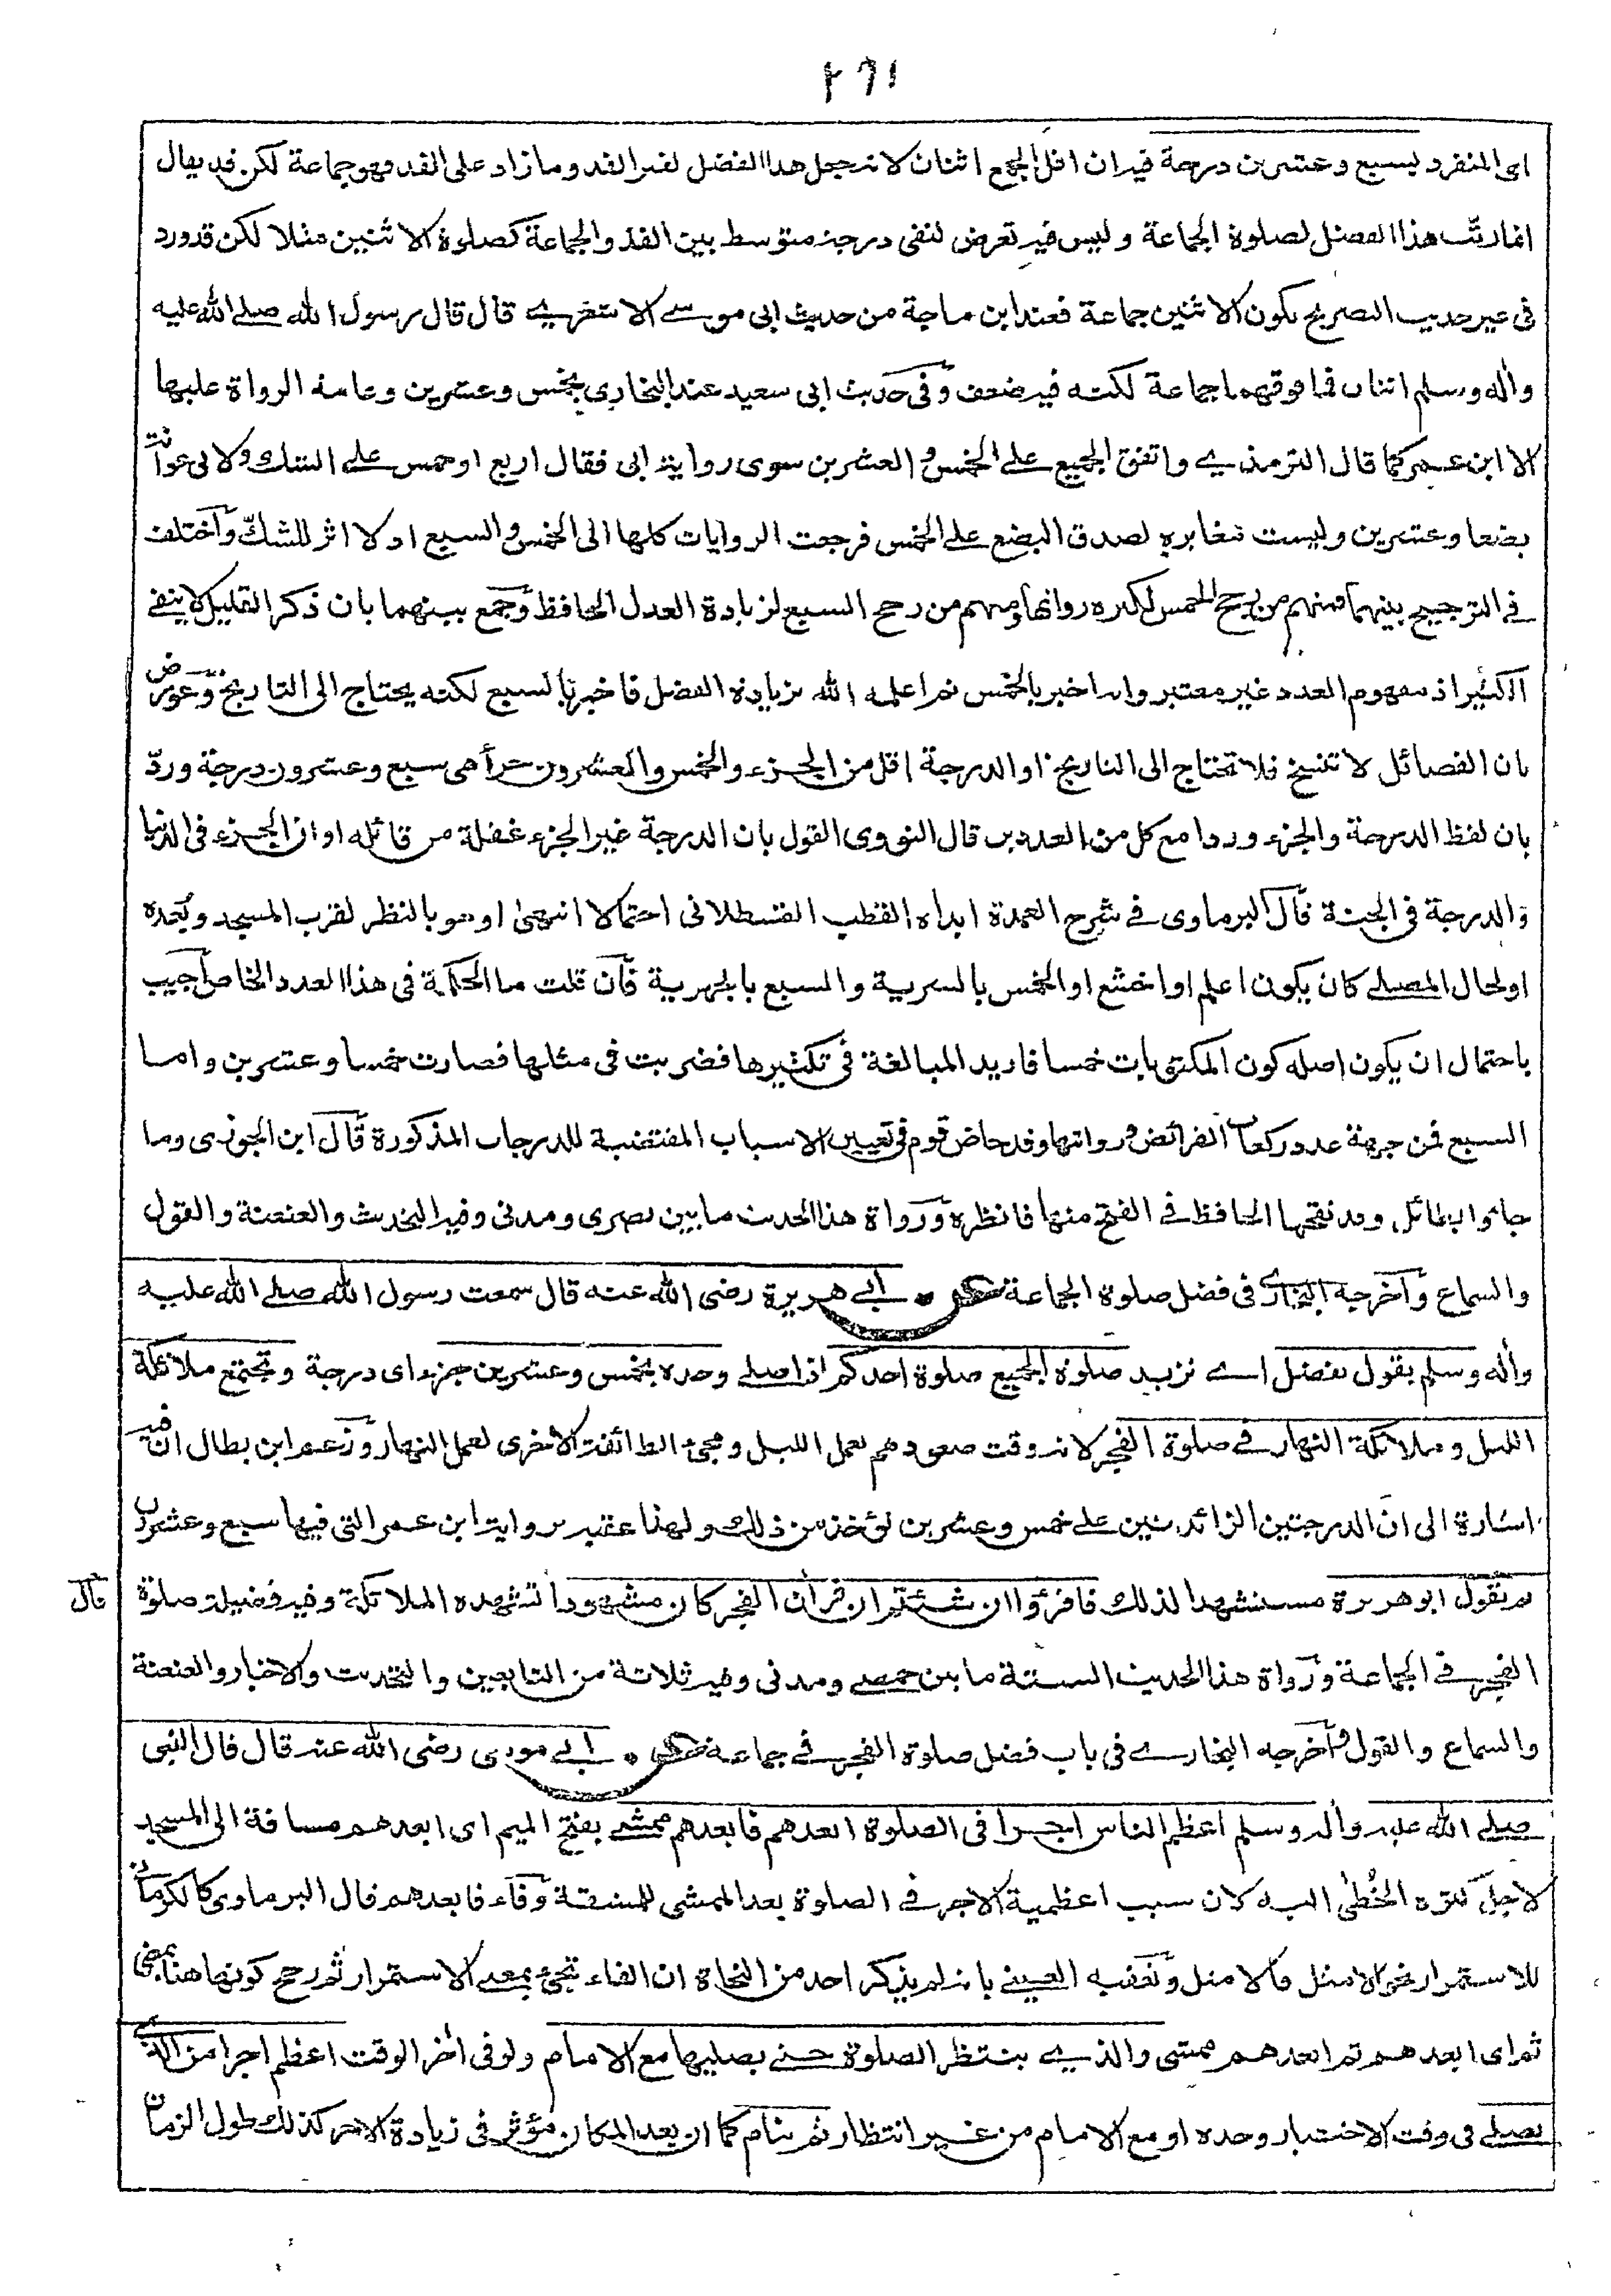 ٢٦١
اى المنفرد بسبع وعشرين درجة فيه ان اقل الجمع اثنان لانه جعل هذا الفضل لغير الفذ وما زاد على الفذ فهو جماعة لكن قد يقال
انما رتّب هذا الفضل لصلوة الجماعة وليس فيه تعرض لنفى درجة متوسط بين الفذ والجماعة كصلوة الاثنين مثلا لكن قد ورد
فى غير حديث التصريح بكون الاثنين جماعة فعند ابن ماجة من حديث ابى موسى الاشعرى قال قال رسول الله صلى الله عليه
وأله وسلم اثنان فما فوقهما جماعة لكنه فيه ضعف وفى حديث ابى سعيد عند البخارى بخمس وعشرين وعامة الرواة عليها
الا ابن عمر كما قال الترمذى واتفق الجميع على الخمس والعشرين سوى رواية ابى فقال اربع او خمس على الشك ولابى عوانة
بضعا وعشرين وليست مغايرة لصدق البضع على الخمس فرجعت الروايات كلها الى الخمس والسبع اذ لا اثر للشكّ واختلف
فى الترجيح بينهما فمنهم من رجح الخمس لكثرة رواتها ومنهم من رجح السبع لزيادة العدل الحافظ وجمع بينهما بان ذكر القليل لا ينفى
الكثير اذ مفهوم العدد غير معتبر وانه اخبر بالخمس ثم اعلمه الله بزيادة الفضل فاخبر بالسبع لكنه يحتاج الى التاريخ وعورض
بان الفضائل لا تنسخ فلا تحتاج الى التاريخ او الدرجة اقل من الجزء والخمس والعشرون جزأ هى سبع وعشرون درجة وردّ
بان لفظ الدرجة والجزء وردا مع كل من العددين قال النووى القول بان الدرجة غير الجزء غفلة من قائله او ان الجزء فى الدنيا
والدرجة فى الجنة قال البرماوى فى شرح العمدة ابداه القطب القسطلانى احتمالا انتهى او هو بالنظر لقرب المسجد وبعده
او لحال المصلى كان يكون اعلم او اخشع او الخمس بالسرية والسبع بالجهرية فان قلت ما الحكمة فى هذا العدد الخاص اجيب
باحتمال ان يكون اصله كون المكتوبات خمسا فاريد المبالغة فى تكثيرها فضربت فى مثلها فصارت خمسا وعشرين واما
السبع فمن جهة عدد ركعات الفرائض ورواتبها وقد خاض قوم فى تعيين الاسباب المقتضية للدرجات المذكورة قال ابن الجوزى وما
جاءوا بطائل وقد نقحها الحافظ فى الفتح منها فانظره ورواة هذا الحديث ما بين بصرى ومدنى وفيه التحديث والعنعنة والقول
والسماع وأخرجه البخارى فى فضل صلوة الجماعة عن ابى هريرة رضى الله عنه قال سمعت رسول الله صلى الله عليه
وأله وسلم يقول تفضل اى تزيد صلوة الجميع صلوة احدكم اذا صلى وحده بخمس وعشرين جزء اى درجة وتجتمع ملائكة
الليل وملائكة النهار فى صلوة الفجر لانه وقت صعودهم بعمل الليل ومجئ الطائفة الاخرى لعمل النهار وزعم ابن بطال ان فيه
اشارة الى ان الدرجتين الزائدتين على خمس وعشرين تؤخذ من ذلك ولهذا عقبه برواية ابن عمر التى فيها سبع وعشرون
ثم يقول ابو هريرة مستشهدا لذلك فاقرؤا ان شئتم ان قرأن الفجر كان مشهودا تشهده الملائكة وفيه فضيلة صلوة
قال
الفجر فى الجماعة ورواة هذا الحديث الستة ما بين حمصى ومدنى وفيه ثلاثة من التابعين والتحديث والاخبار والعنعنة
والسماع والقول وأخرجه البخارى فى باب فضل صلوة الفجر فى جماعة عن ابى موسى رضى الله عنه قال قال النبى
صلى الله عليه وأله وسلم اعظم الناس اجرا فى الصلوة ابعدهم فابعدهم ممشى بفتح الميم اى ابعدهم مسافة الى المسجد
لاجل كثرة الخُطىٰ اليه كان سبب اعظمية الاجر فى الصلوة بعد الممشى للمشقة وفاء فابعدهم قال البرماوى كالكرمانى
للاستمرار نحو الامثل فالامثل وتعقبه العينى بانه لم يذكر احد من النحاة ان الفاء تجئ بمعنى الاستمرار ثم رجح كونها هنا بمعنى
ثم اى ابعدهم ثم ابعدهم ممشى والذى ينتظر الصلوة حتى يصليها مع الامام ولو فى أخر الوقت اعظم اجرا من الذى
يصلى فى وقت الاختيار وحده او مع الامام من غير انتظار ثم ينام كما ان بعد المكان مؤثر فى زيادة الاجر كذلك طول الزمان